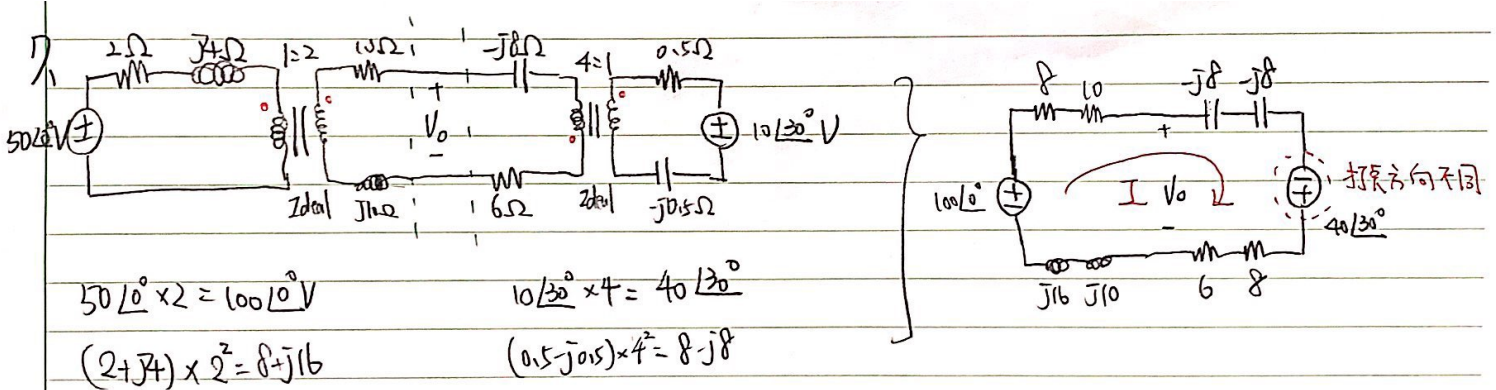 2Ω J4Ω 1:2 10Ω -J8Ω 4:1 0.5Ω
50∠0°V + Vo - 10∠30°V
Ideal J10Ω 6Ω Ideal -J0.5Ω
50∠0° × 2 = 100∠0° V
(2+J4) × 2² = 8+J16
10∠30° × 4 = 40∠30°
(0.5-J0.5) × 4² = 8-J8
8 10 -J8 -J8
100∠0° + I Vo - 40∠30°
方向不同
J16 J10 6 8